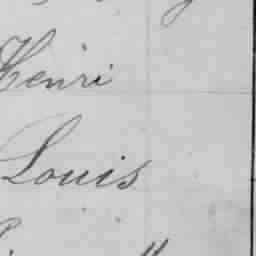 Henri
Louis